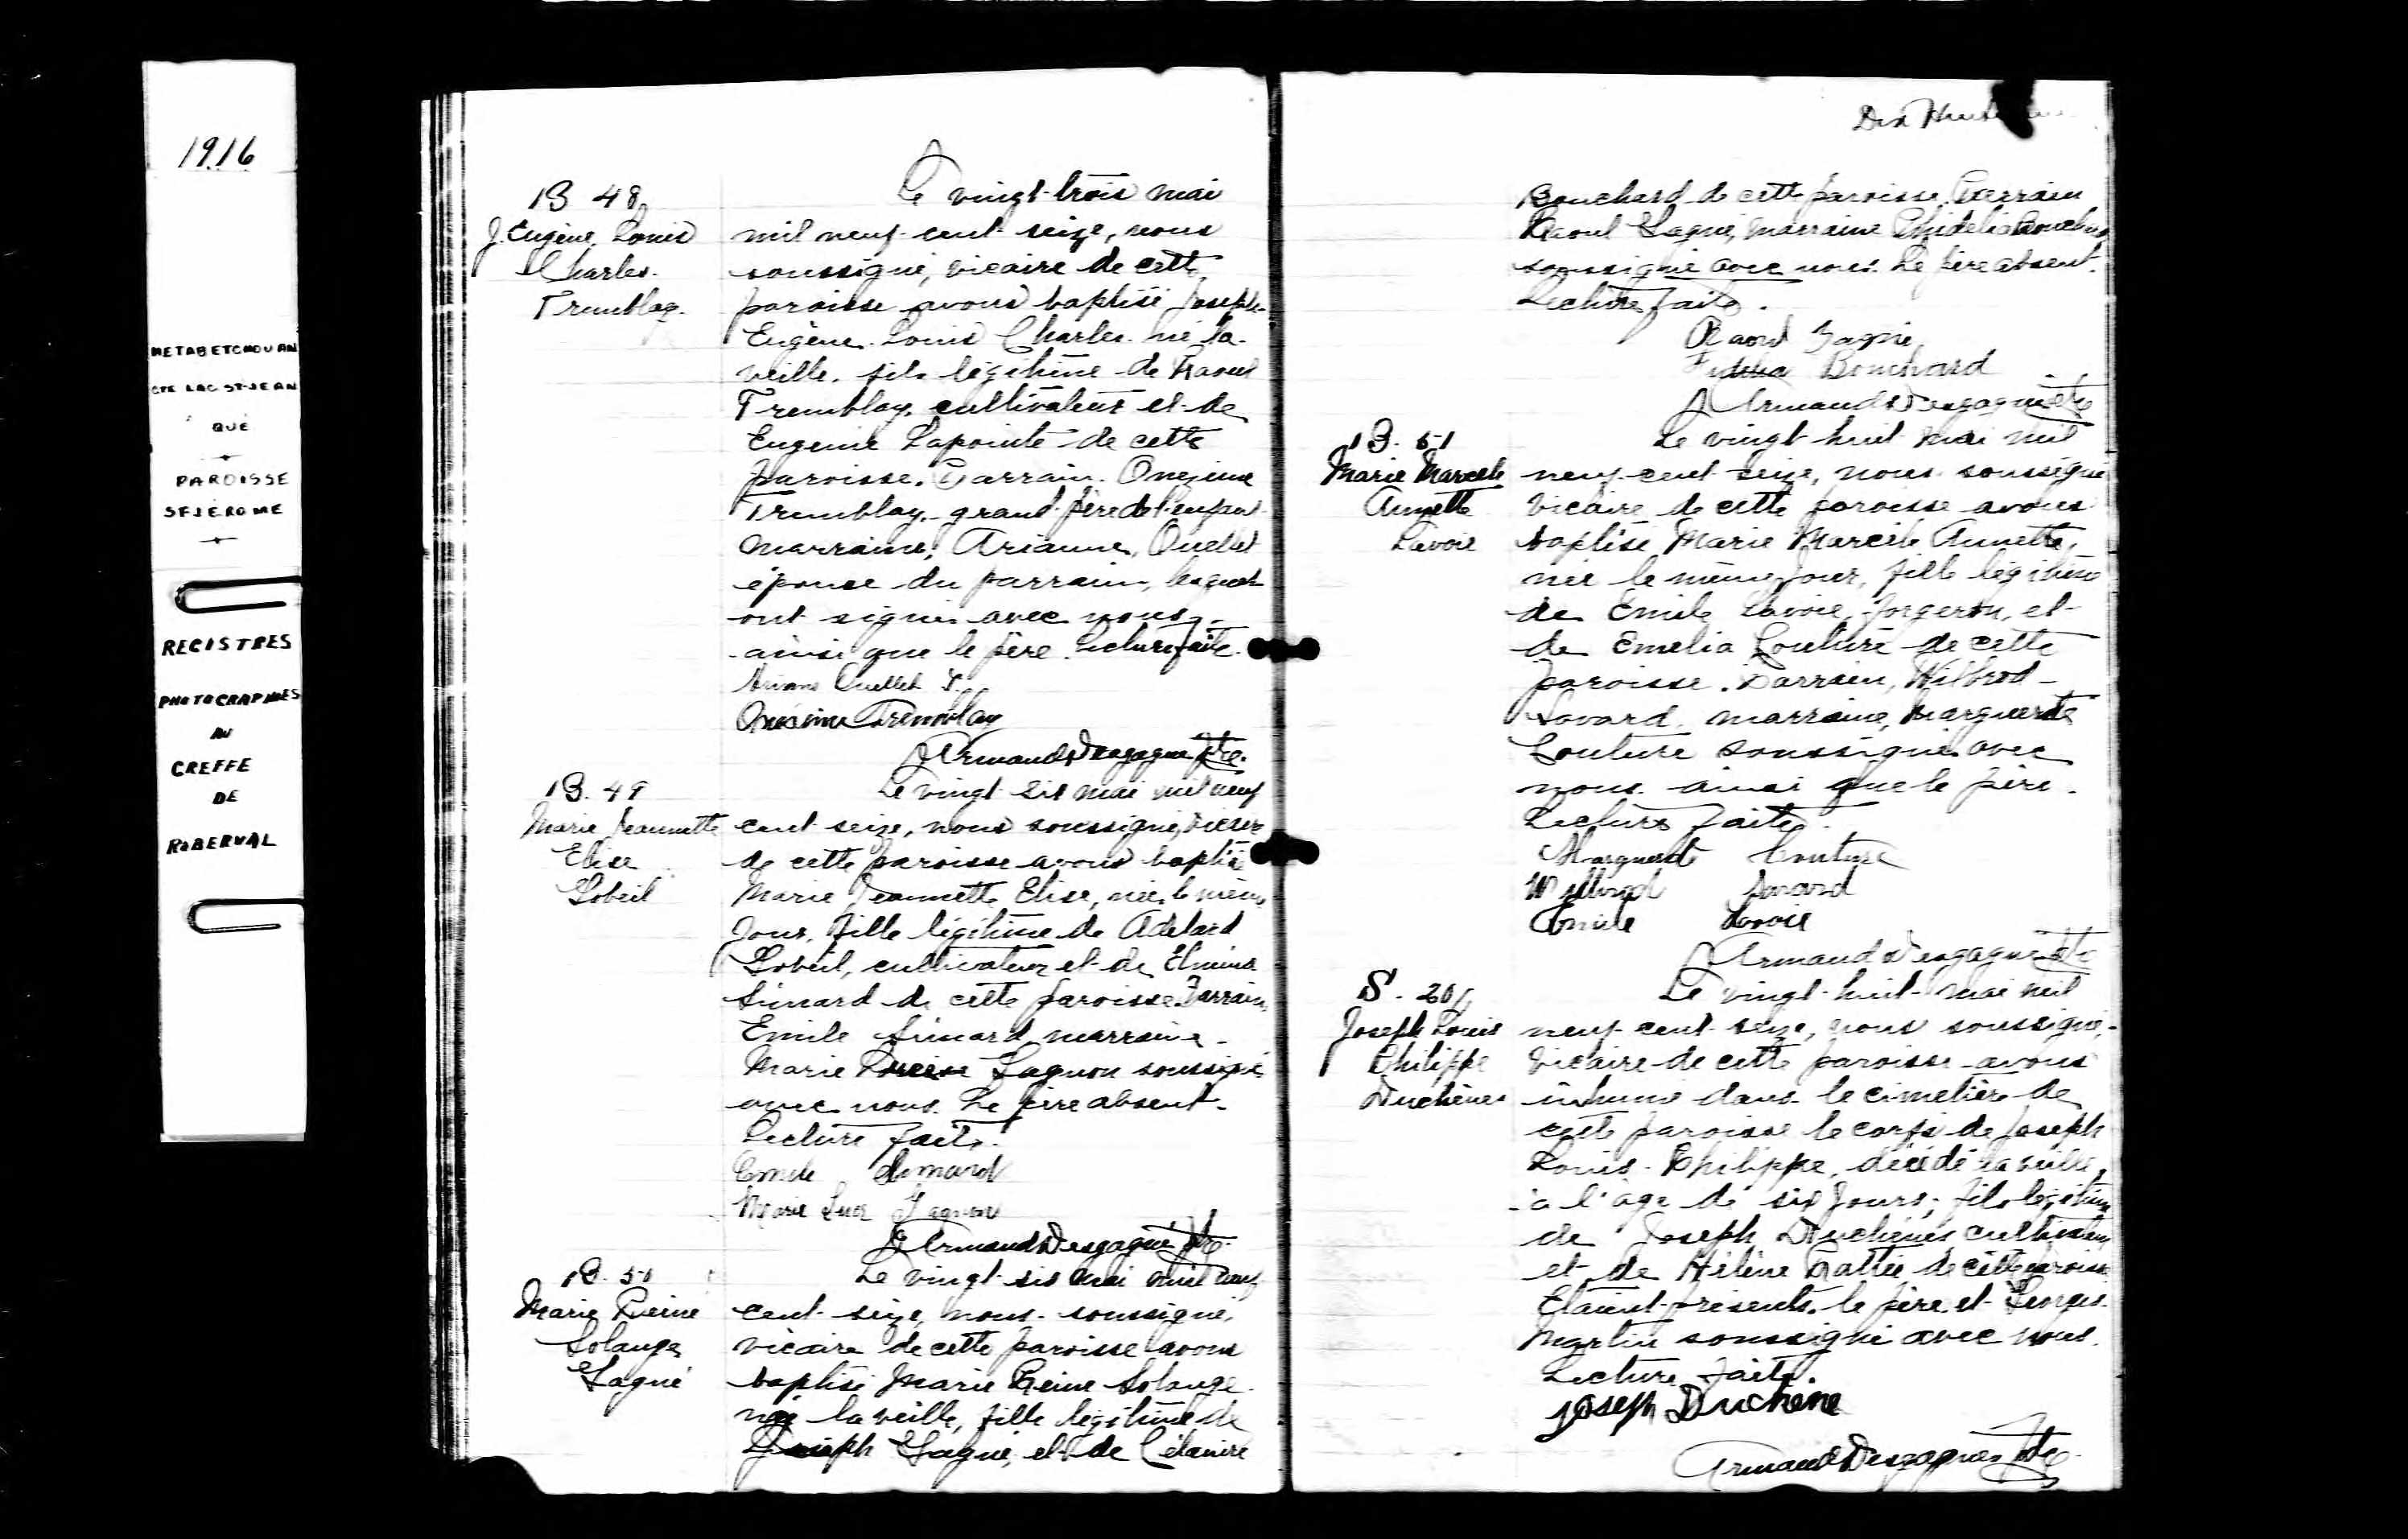 1916
METABETCHOUAN
CTE LAC ST-JEAN
QUÉ
PAROISSE
ST JEROME
REGISTRES
PHOTOGRAPHIES
AU
GREFFE
DE
ROBERVAL
B 48
J. Eugène, Louis
Charles.
Tremblay.
Le vingt-trois mai
mil neuf cent seize, nous
soussigné, vicaire de cette
paroisse avons baptisé Joseph-
Eugène Louis Charles né la
veille, fils légitime de Raoul
Tremblay, cultivateur et de
Eugenie Lapointe de cette
paroisse. Parrain Onezime
Tremblay, grand-père de l'enfant
marraine, Arianne, Ouellet
épouse du parrain, lesquels
ont signés avec nous,
ainsi que le père. Lecture faite.
Ariane Ouellet T.
Onésime Tremblay
J Armand Desgagné Ptre.
B. 49
Marie Jeannette
Elise
Gobeil
Le vingt six mai mil neuf
cent seize, nous soussigné, vicaire
de cette paroisse avons baptisé
Marie Jeannette Elise, née le même
jour, fille légitime de Adelard
Gobeil, cultivateur et de Elmina
Simard de cette paroisse. Parrain,
Emile Simard marraine
Marie Gagnon soussignés
avec nous. Le père absent.
Lecture faite.
Emile Simard
Marie Luce Gagnon
J Armand Desgagné Ptre.
B. 50
Marie Reine
Solange
Gagné
Le vingt six mai mil neuf
cent seize, nous soussigné,
vicaire de cette paroisse avons
baptisé Marie Reine Solange
née la veille, fille légitime de
Joseph Gagné, et de Célanire
Dix Huit
Bouchard de cette paroisse. Parrain
Raoul Gagné, marraine Phidelia Bouchard
soussignés avec nous. Le père absent.
Lecture faite.
Raoul Gagné
Fidélia Bouchard
J Armand Desgagné Ptre
B. 51
Marie Marcelle
Annette
Lavoie
Le vingt huit mai mil
neuf cent seize, nous soussigné
vicaire de cette paroisse avons
baptisé Marie Marcelle Annette,
née le même jour, fille légitime
de Emile Lavoie, forgeron, et
de Emelia Couture de cette
paroisse. Parrain, Wilbrod
Savard, marraine, Marguerite
Couture soussignés avec
nous ainsi que le père.
Lecture faite.
Marguerite Couture
Wilbrod Savard
Emile Lavoie
J Armand Desgagné Ptre
S. 20
Joseph Louis
Philippe
Duchènes
Le vingt-huit mai mil
neuf cent seize, nous soussigné,
vicaire de cette paroisse avons
inhumé dans le cimetière de
cette paroisse le corps de Joseph
Louis-Philippe, décédé la veille,
à l'âge de six jours, fils légitime
de Joseph Duchènes cultivateur
et de Hélène Rattée de cette paroisse
Etaient présents, le père et Georges
Martin soussigné avec nous.
Lecture faite.
Joseph Duchene
Armand Desgagnés Ptre